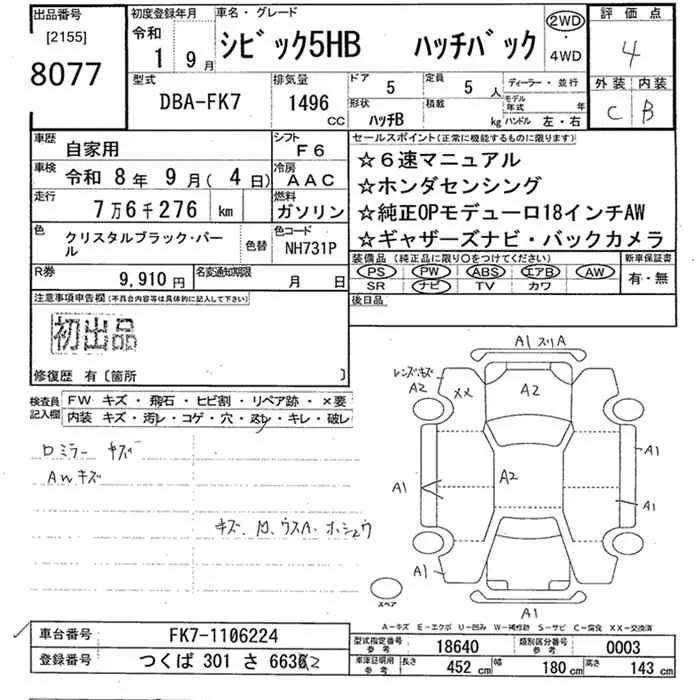 出品番号
[2155]
8077
初度登録年月
令和
1 9月
車名・グレード
シビック5HB ハッチバック
2WD
・
4WD
評価点
4
外装 内装
C B
型式
DBA-FK7
排気量
1496 CC
ドア 5
形状 ハッチB
定員 5 人
積載 kg
ディーラー・並行
モデル年式 年
ハンドル 左・右
車歴 自家用
シフト F6
車検 令和 8年 9月( 4日)
冷房 AAC
走行 7万6千276 km
燃料 ガソリン
色 クリスタルブラック・パール
色替
色コード NH731P
R券 9,910円
名変通知期限 月 日
セールスポイント(正常に機能するものに限ります)
☆6速マニュアル
☆ホンダセンシング
☆純正OPモデューロ18インチAW
☆ギャザーズナビ・バックカメラ
装備品(純正品に限り○をつけてください)
PS PW ABS エアB AW
SR ナビ TV カワ
新車保証書
有・無
後日品
注意事項申告欄(不具合内容等は具体的に記入して下さい)
初出品
修復歴 有〔箇所 〕
検査員記入欄
FW キズ・飛石・ヒビ割・リペア跡・×要
内装 キズ・汚レ・コゲ・穴・ヌレ・キレ・破レ
ロミラー キズ
AWキズ
キズ、凹、ウスA、ホシュウ
A1 スリA
レンズ・キズ
A2
XX
A2
A1
A2
A1
A1
A1
A1
スペア
A-キズ E-エクボ U-凹み W-補修跡 S-サビ C-腐食 XX-交換済
車台番号 FK7-1106224
登録番号 つくば 301 さ 6632
型式指定番号 参考 18640
類別区分番号 参考 0003
車庫証明用 参考
長さ 452 cm
幅 180 cm
高さ 143 cm